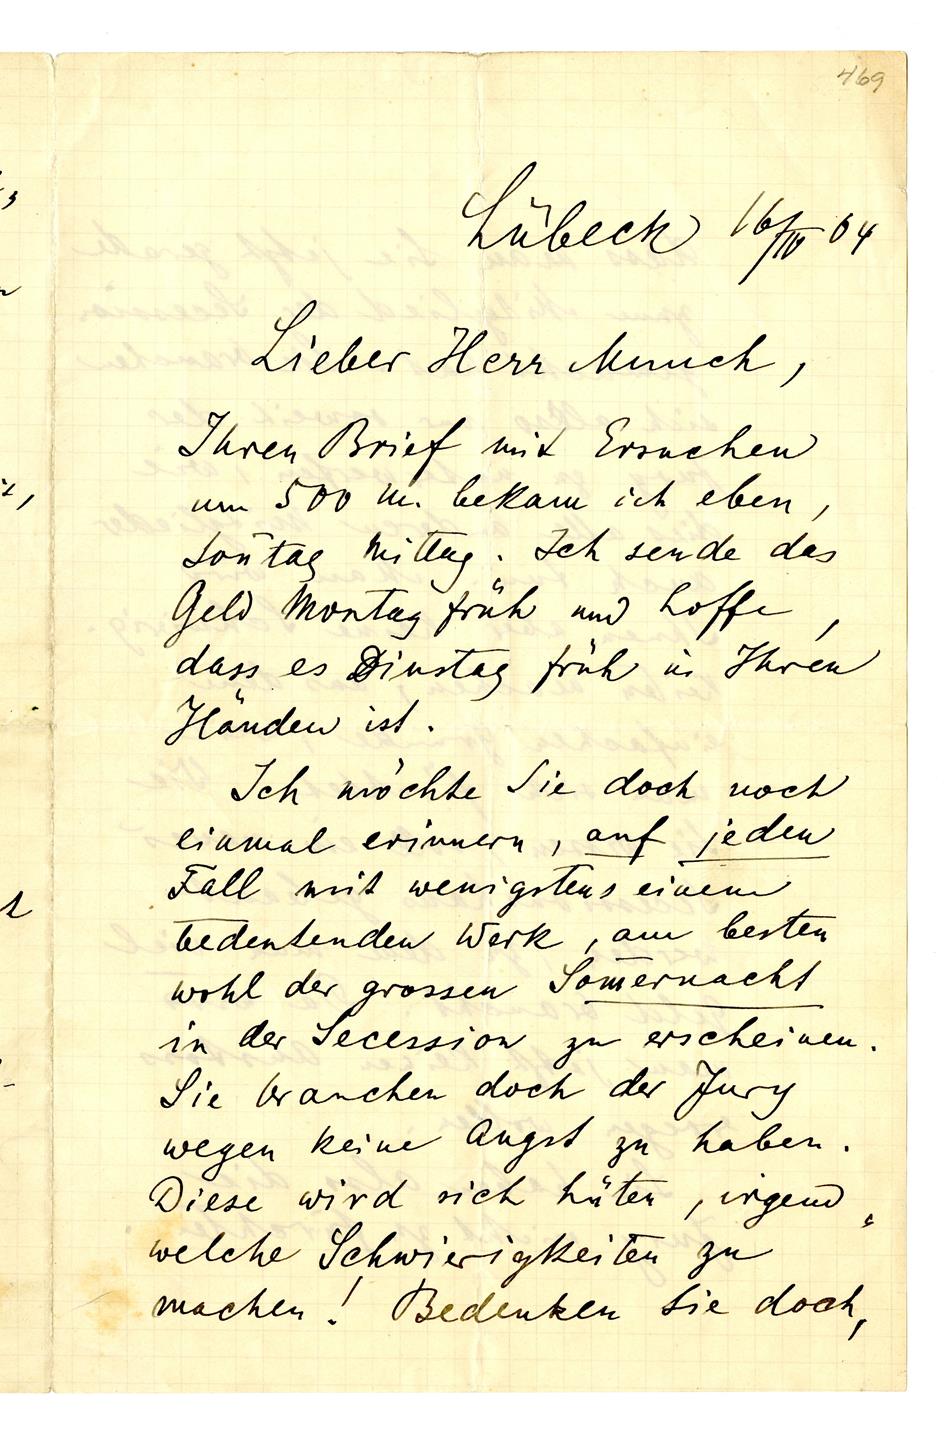 469
Lübeck 16/IV 04
Lieber Herr Munch,
Ihren Brief mit Ersuchen
um 500 M. bekam ich eben,
Soñtag Mittag. Ich sende das
Geld Montag früh und hoffe,
dass es Dinstag früh in Ihren
Händen ist.
Ich möchte Sie doch noch
einmal erinnern, auf jeden
Fall mit wenigstens einem
bedeutenden Werk, am besten
wohl der grossen Som̄ernacht
in der Secession zu erscheinen.
Sie brauchen doch der Jury
wegen keine Angst zu haben.
Diese wird sich hüten, irgend
welche Schwierigkeiten zu
machen! Bedenken Sie doch,